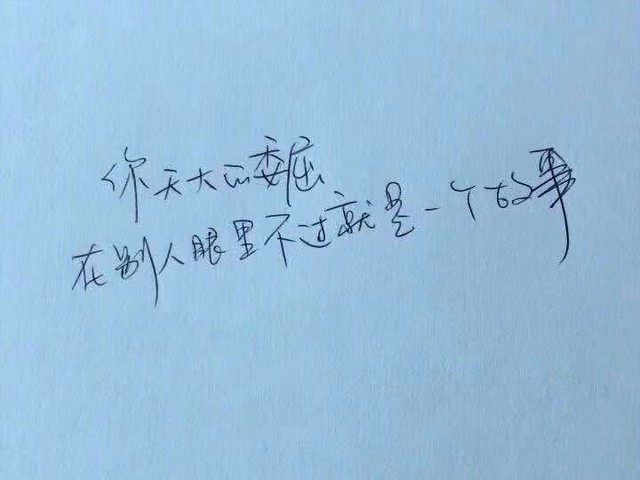 你天大的委屈
在别人眼里不过就是一个故事